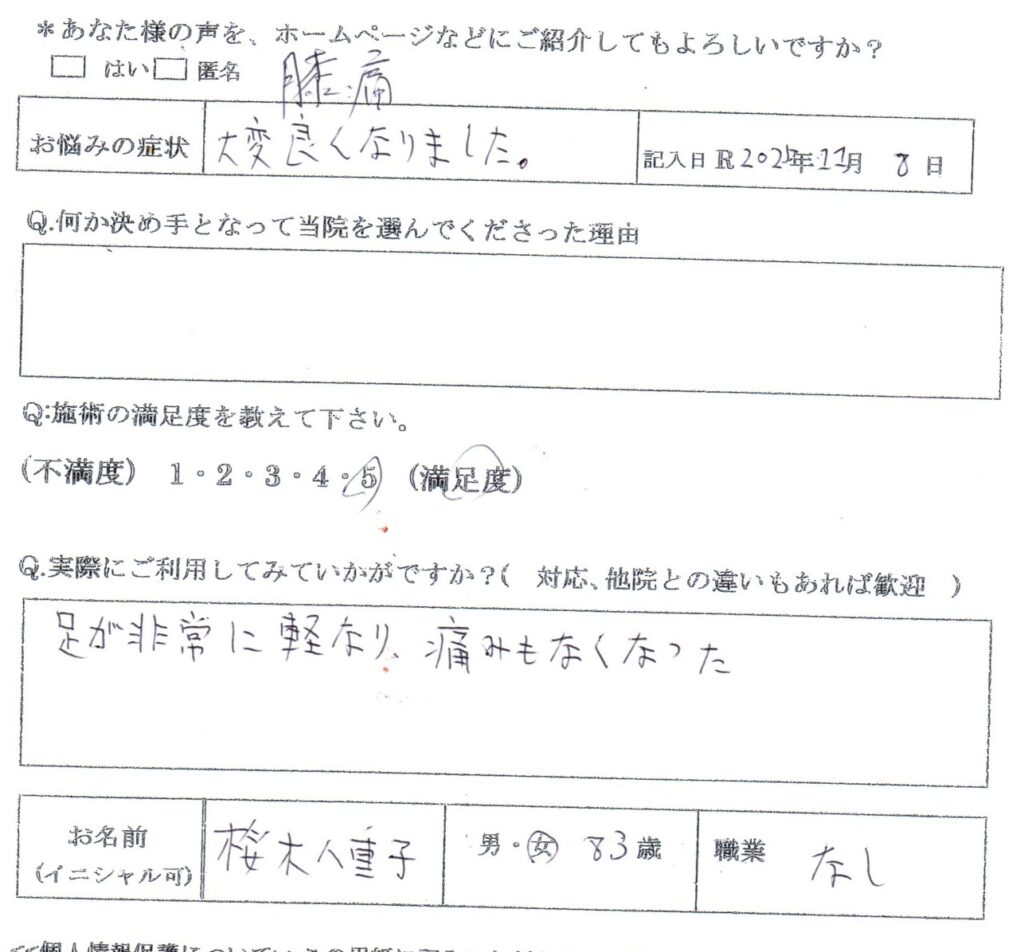 *あなた様の声を、ホームページなどにご紹介してもよろしいですか?
はい 匿名
膝痛
お悩みの症状 大変良くなりました。 記入日R 年11月 8日
Q.何か決め手となって当院を選んでくださった理由
Q:施術の満足度を教えて下さい。
(不満度) 1・2・3・4・5 (満足度)
Q.実際にご利用してみていかがですか?( 対応、他院との違いもあれば歓迎 )
足が非常に軽なり、痛みもなくなった
お名前 桜木八重子 男・女 83歳 職業 なし
(イニシャル可)